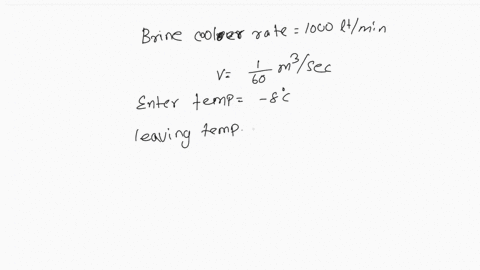 Brine cooler rate = 1000 lt/min
V = 1/60 m³/sec
Enter temp = -8°c
leaving temp.